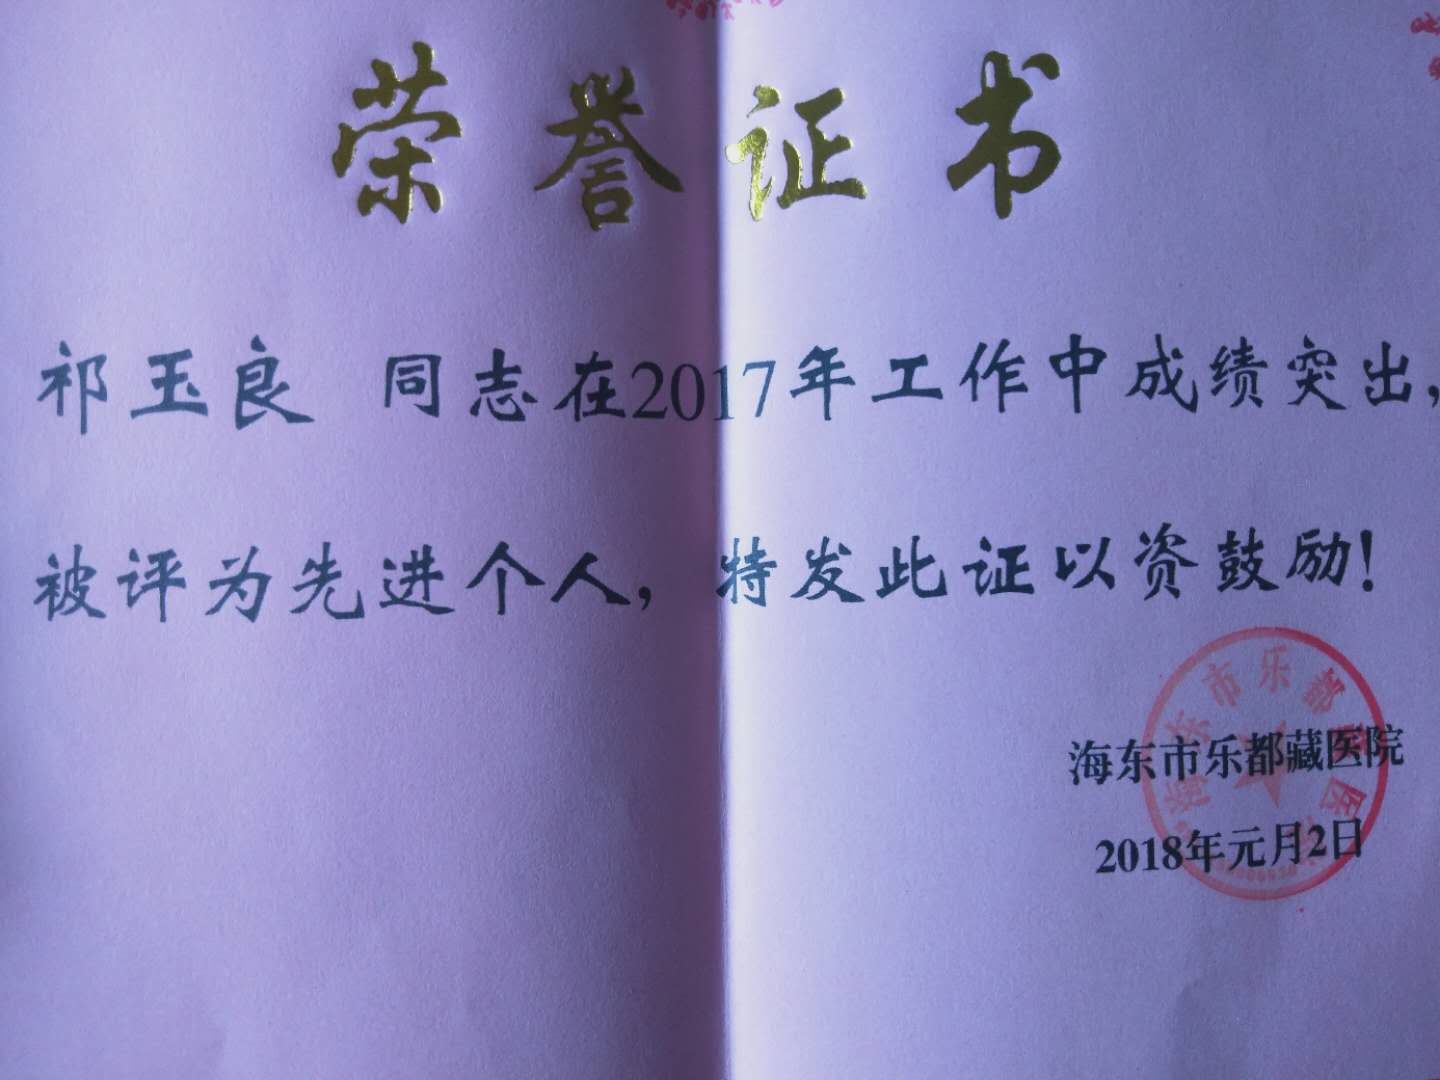 荣誉证书
祁玉良 同志在2017年工作中成绩突出，
被评为先进个人，特发此证以资鼓励！
海东市乐都藏医院
2018年元月2日
海东市乐都藏医院